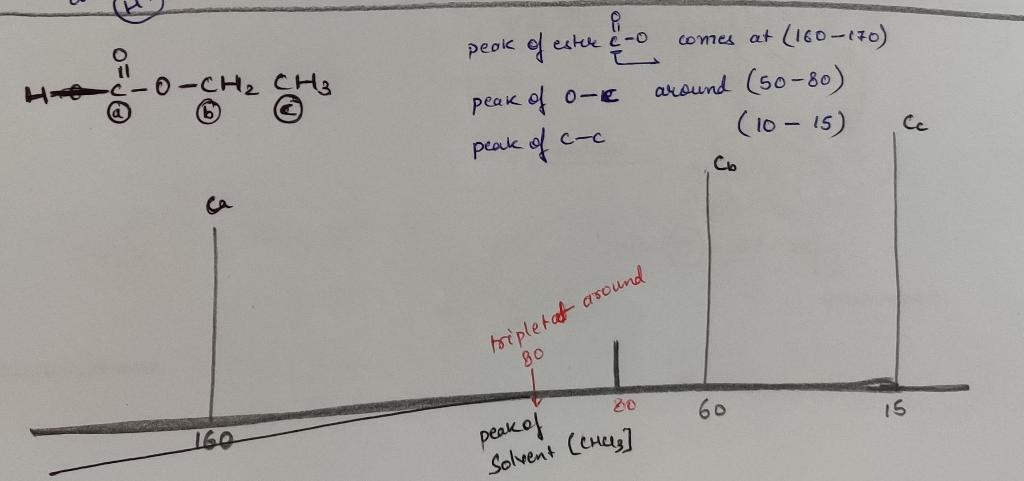 H
O
||
H-C-O-CH2 CH3
a b c
O
||
peak of ester C-O comes at (160-170)
peak of O-C around (50-80)
peak of C-C (10-15)
Ca
Cb
Cc
triplet at around
80
160
80
60
15
peak of
Solvent [CHCl3]